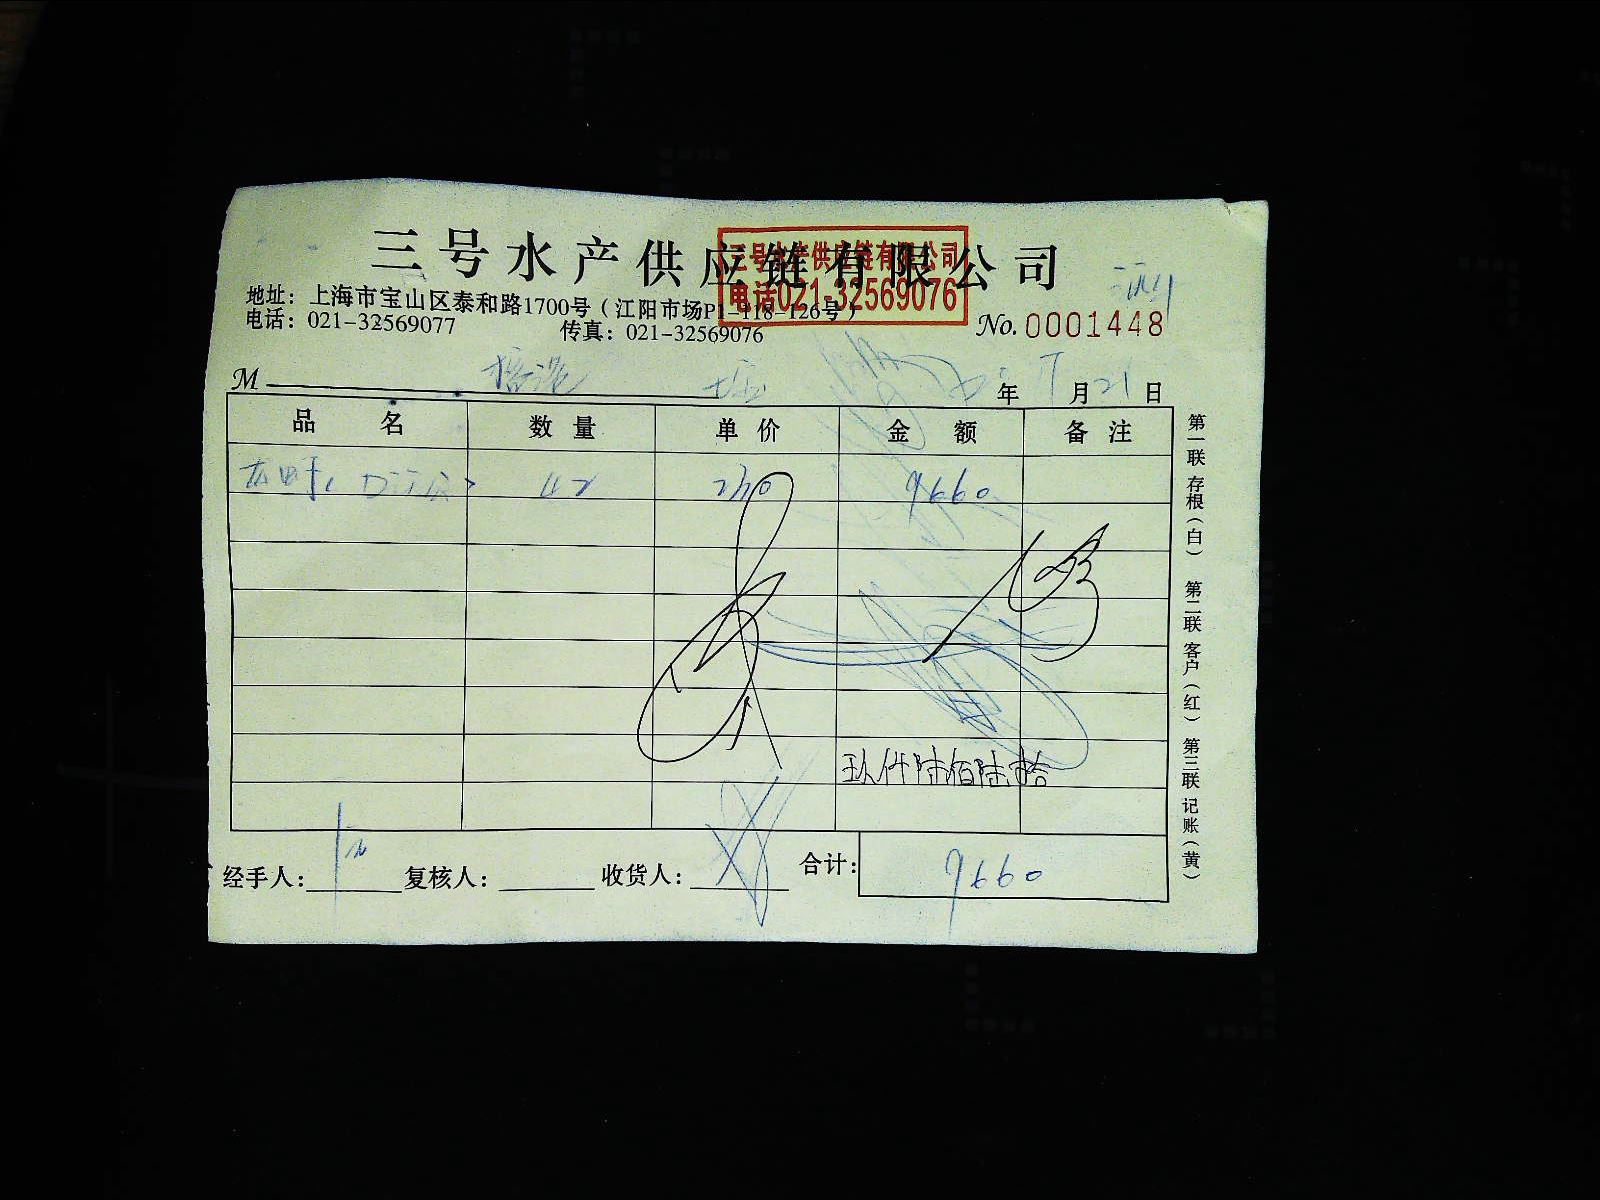 三号水产供应链有限公司
三号水产供应链有限公司
电话021-32569076
地址：上海市宝山区泰和路1700号（江阳市场P1-118-126号）
电话：021-32569077 传真：021-32569076
No. 0001448
M 年 月 21 日
品名 数量 单价 金额 备注
42 230 9660
玖仟陆佰陆拾
经手人： 复核人： 收货人： 合计： 9660
第一联 存根（白） 第二联 客户（红） 第三联 记账（黄）